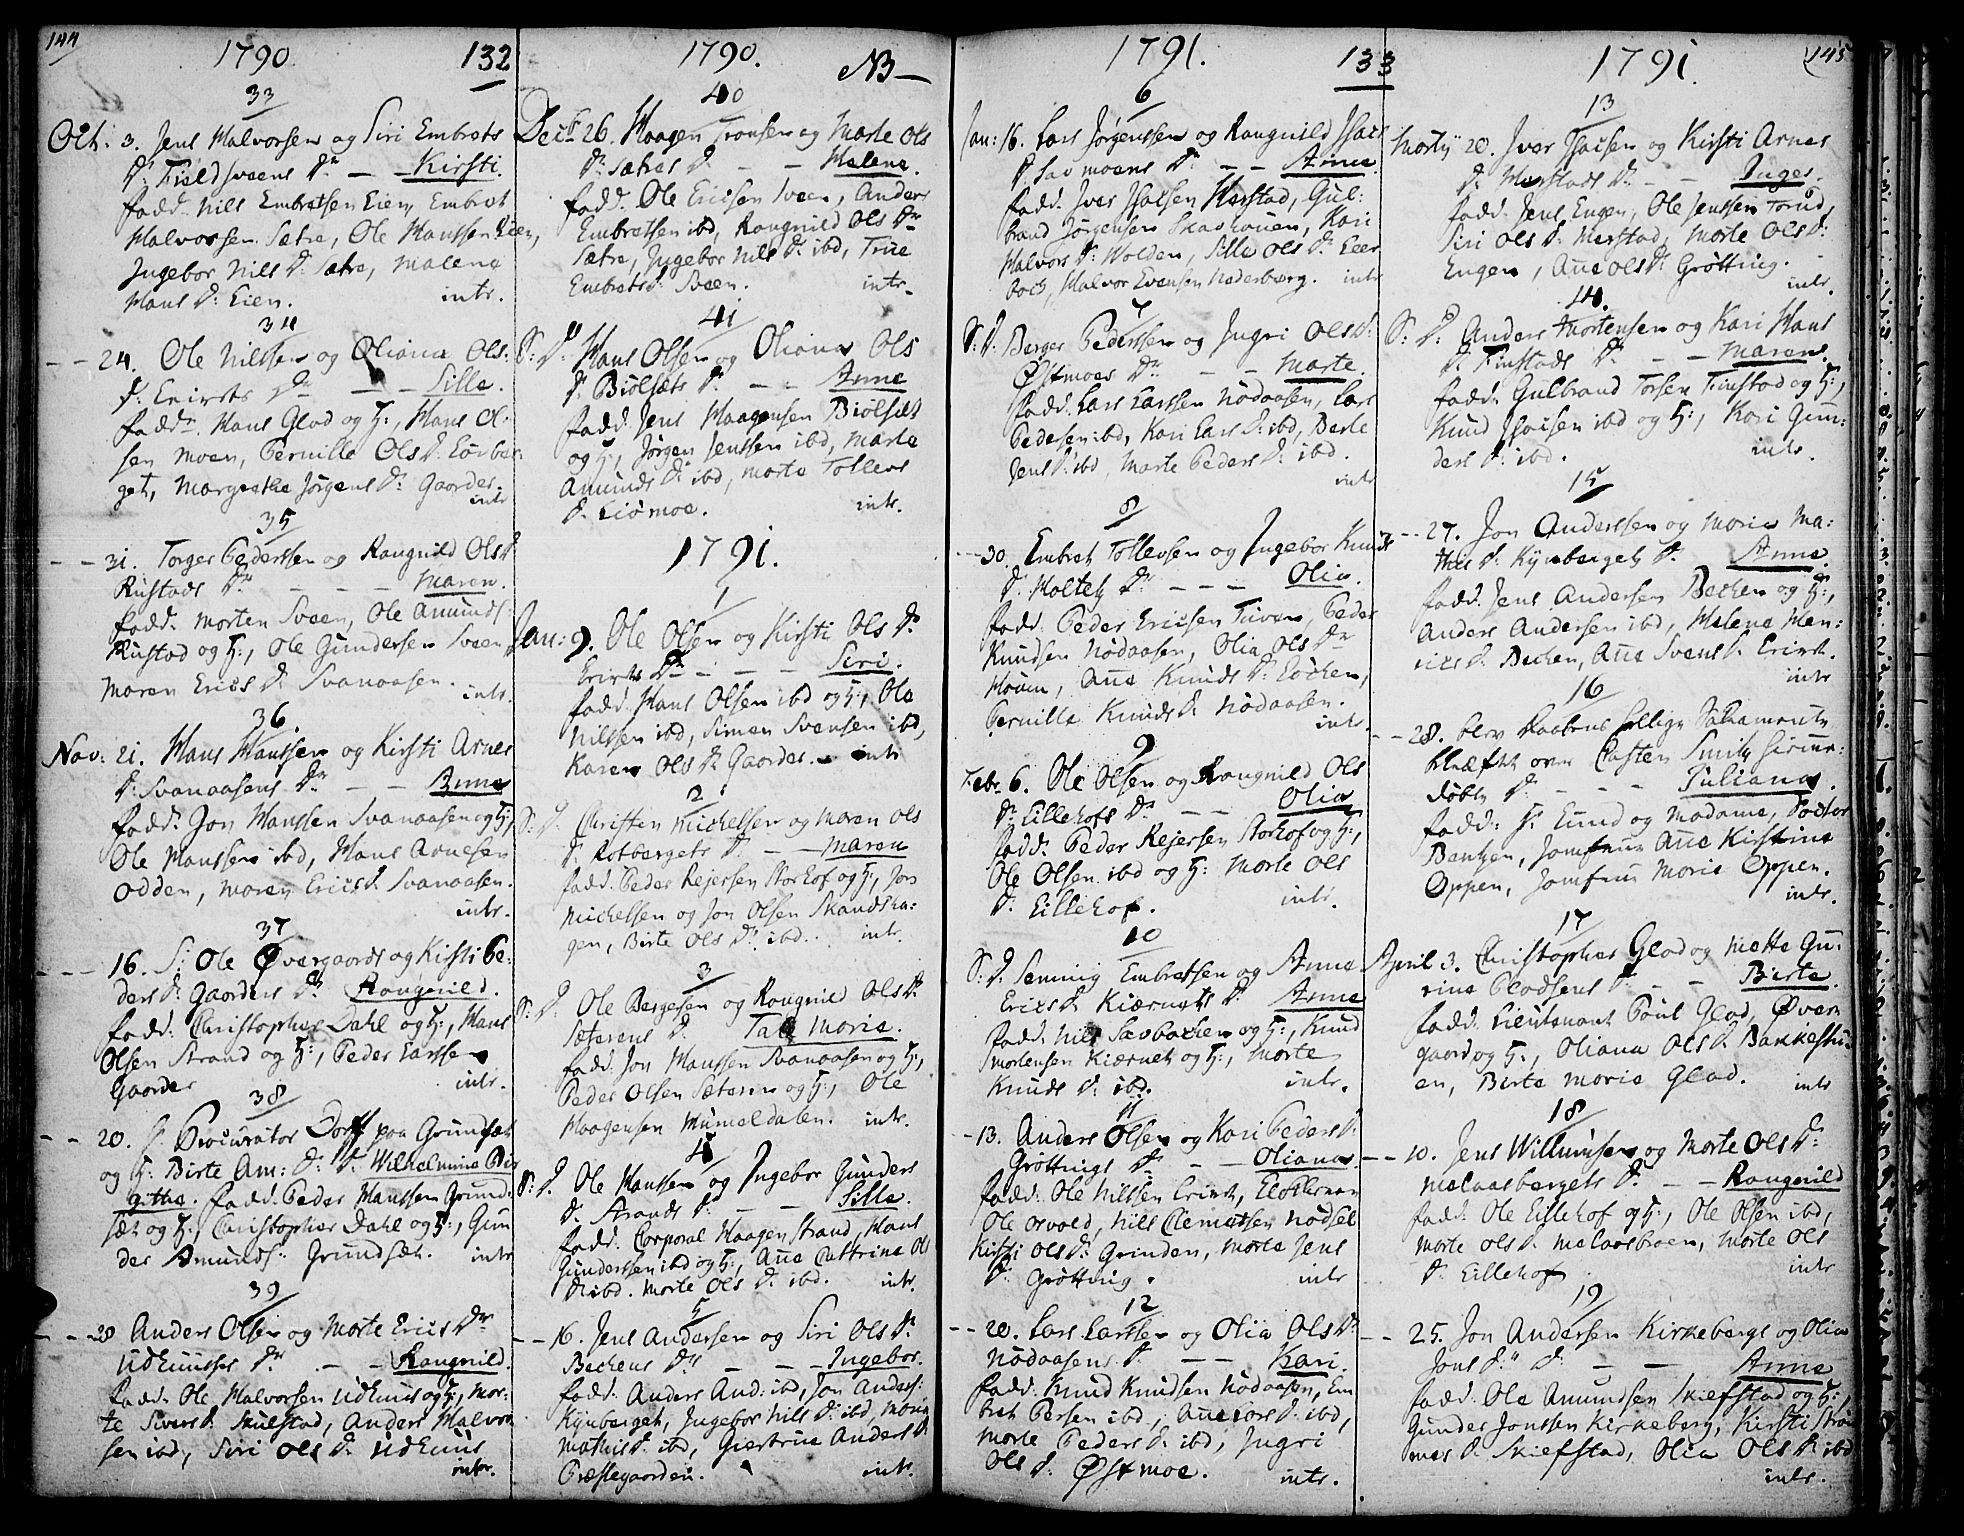 144
1790
132
33
Oct. 3. Jens Halvorsen og Siri Embrets
Dr. Fieldsveens Dr. — Kirsti.
fadd. Nils Embretsen Eien, Embret
Halvorsen Sætre, Ole Hanssen Eien,
Ingebor Nils Dr. Sætre, Malene
Hans Dr. Eien. intr.
34
- - 24. Ole Nilssen og Oliana Ols:
Dr. Erirets Dr. — — Sille.
fadd. Hans Glad og H:, Hans Ol-
sen Moen, Pernille Ols Dr. Løvber
get, Margrethe Jørgens Dr. Gaarder.
intr
35
- - 31. Torger Pederssen og Rangnild Ols Dr
Rustads Dr. - - - Maren.
fadd. Morten Sveen, Ole Amunds:
Rustad og H:, Ole Gundersen Sveen,
Maren Erics Dr. Svanaasen. intr.
36.
Nov: 21. Hans Hanssen og Kirsti Arnes
Dr. Svanaasens Dr. — — Anne
fadd. Jon Hanssen Svanaasen og H:,
Ole Hanssen ibd, Hans Arnesen
Odden, Maren Erics Dr. Svanaasen.
intr.
37
- - - 16. S: Ole Øvergaards og Kirsti Pe:
ders Dr. Gaarders Dr. Rangnild.
fadd. Christopher Dahl og H:, Hans
Olsen Strand og H:, Peder Larssen
Gaarder intr.
38
- - 20. S. Procurator Dorff paa Grundset
og H: Birte Am: Dr. Dr. Wilhelmina Bir
githa. fadd. Peder Hanssen Grund-
set og H:, Christopher Dahl og H:, Gun
der Amunds: Grundset. intr
39
- - 28 Anders Olsen og Marte Erics Dr
Udhuuses Dr. - - Rangnild.
fadd. Ole Halvorsen Udhuus og H:, Mar:
te Sivers Dr. Skulstad, Anders Halvor
sen ibd, Siri Ols Dr. Udhuus
intr.
1790.
NB —
40
Decbr 26. Haagen Tronsen og Marte Ols
Dr. Sætres Dr. — Malene.
fadd. Ole Ericsen Sveen, Anders
Embretsen ibd, Rangnild Ols Dr.
Sætre, Ingebor Nils Dr. ibd, True
Embrets Dr. Sveen. intr.
41
S: D. Hans Olsen og Oliana Ols
Dr. Biølsets Dr. - - Anne
fadd. Jens Haagensen Biølset
og H:, Jørgen Jenssen ibd, Marte
Amunds Dr. ibd, Marte Tollevs
Dr. Liømoe. intr.
1791.
1
Jan: 9. Ole Olsen og Kirsti Ols Dr.
Erirets Dr. - - - Siri.
fadd. Hans Olsen ibd og H:, Ole
Nilssen ibd, Simen Svensen ibd,
Karen Ols Dr. Gaarder. intr
2
S: D. Christen Michelsen og Maren Ols
Dr. Rotbergets Dr. — Maren
fadd. Peder Rejersen Storhof og H:, Jon
Michelsen og Jon Olsen Skandsha:
gen, Birte Ols Dr. ibd. intr.
3
S: D. Ole Bergesen og Rangnild Ols Dr.
Sæterens Dr. Tale Marie.
fadd. Jon Hanssen Svanaasen og H:,
Peder Olsen Sæteren og H:, Ole
Haagensen Mumeldalen. intr.
4
S: D. Ole Hanssen og Ingebor Gunders
Dr. Strands Dr. — — Sille.
fadd. Corporal Haagen Strand, Hans
Gunderssen ibd og H:, Ane Cathrine Ols
Dr. ibd. Marte Ols Dr. ibd. intr.
5
- - 16. Jens Andersen og Siri Ols Dr.
Beckens Dr. — — Ingebor.
fadd. Anders And: ibd, Jon Anders:
Kynberget, Ingebor Nils Dr. ibd, Marie
Mathis Dr. ibd, Giertrue Anders Dr.
Præstegaarden. intr.
1791.
133
6
Jan: 16. Lars Jørgenssen og Rangnild Isacs
Dr. Savmoens Dr. - - Anne
fadd. Iver Isacsen Harstad, Gul:
brand Jørgensen Skavhouen, Kari
Halvors Dr. Wolden, Sille Ols Dr. Eeer
bech, Halvor Evensen Nederberg. intr
7
S: D. Berger Pederssen og Ingri Ols Dr:
Østmoes Dr. — — Marte.
fadd. Lars Larssen Nødaasen, Lars
Pedersen ibd, Kari Lars Dr. ibd, Berte
Jens Dr. ibd, Marte Peders Dr. ibd.
intr
8
- - - 30. Embret Tollevsen og Ingebor Knuds
Dr. Holtets Dr. - - - Olia.
fadd. Peder Ericsen Tuven, Peder
Knudsen Nødaasen, Olia Ols Dr.
Houen, Ane Knuds Dr. Løcken,
Pernille Knuds Dr. Nødaasen.
intr.
9
Febr. 6. Ole Olsen og Rangnild Ols
Dr. Lillehofs Dr. - - Olia
fadd. Peder Rejersen Storhof og H:,
Ole Olsen ibd og H: Marte Ols
Dr. Lillehof. intr.
10
S: D. Senning Embretsen og Anne
Erics Dr. Kiærnets Dr. Anne
fadd. Nils Savbacken og H:, Knud
Mortensen Kiærnet og H:, Marte
Knuds Dr. ibd. intr.
11
- 13. Anders Olsen og Kari Peders Dr:
Grøttings Dr. - - Oliana.
fadd. Ole Nilssen Eriret, Klockeren
Ole Orvald, Nils Clemetsen Nødset
Kirsti Ols Dr. Grinden, Marte Jens
Dr. Grøtting. intr
12
- - 20. Lars Larssen og Olia Ols Dr.
Nødaasens Dr. — — Kari.
fadd. Knud Knudsen Nødaasen, Em
bret Persen ibd, Ane Lars Dr. ibd,
Marte Peders Dr. ibd, Ingri
Ols Dr. Østmoe. intr.
1791.
145
13
Martij 20. Iver Isacsen og Kirsti Arnes
Dr. Harstads Dr. - - Inger.
fadd. Jens Engen, Ole Jenssen Torud,
Siri Ols Dr. Harstad, Marte Ols Dr:
Engen, Ane Ols Dr. Grøtting.
intr.
14.
S: D: Anders Mortensen og Kari Hans
Dr. Finstads Dr. - - Maren.
fadd. Gulbrand Torsen Finstad og H:,
Knud Isacsen ibd og H:, Kari Gun:
ders Dr. ibd. intr.
15
- - 27. Jon Anderssen og Marie Ma:
thies Dr. Kynbergets Dr. Anne.
fadd. Jens Andersen Becken og H:,
Anders Andersen ibd, Malene Hen:
rics Dr. Becken, Ane Svens Dr. Eriret.
intr
16
- - 28. blev Daabens hellige Sakramente
bekræftet over Casten Smitz hiemme:
døbte Dr. - - - Juliana.
fadd: Hr. Lund og Madame, Doctor
Bentzen, Jomfrue Ane Kirstine
Oppen, Jomfrue Marie Oppen.
intr.
17
April 3. Christopher Glad og Mette Gu:
rine Cladsens Dr. — — Birte.
fadd. Lieutenant Poul Glad, Øver
gaard og H:, Oliana Ols Dr. Bakkestu-
en, Birte Marie Glad. intr
18
- - 10. Jens Willumsen og Marte Ols Dr:
Melaasbergets Dr. — — Rangnild
fadd. Ole Lillehof og H:, Ole Olsen ibd,
Marte Ols Dr. Melaasbraen, Marte Ols
Dr. Lillehof intr
19
- - 25. Jon Andersen Kirkebergs og Olia
Jons Dr. Dr. — — Anne
fadd. Ole Amundsen Skiefstad og H:,
Gunder Jonssen Kirkeberg, Kirsti
mes Dr. Skiefstad, Olia Ols Dr. ibd
intr.